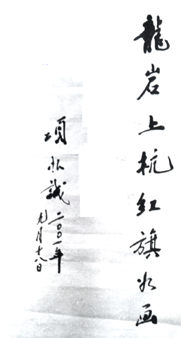 龍岩上杭紅旗水画
項永誠
二〇〇一年
九月十八日